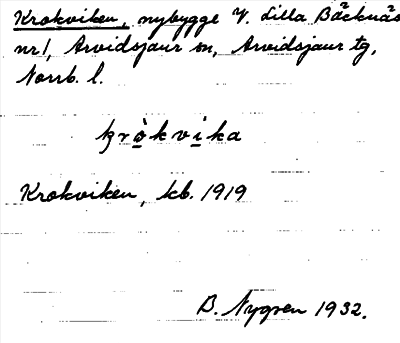 Krokviken, nybygge V. Lilla Bäcknäs
nr 1, Arvidsjaur sn, Arvidsjaur tg,
Norrb. l.
kròkvika
Krokviken, kb. 1919
B. Nygren 1932.